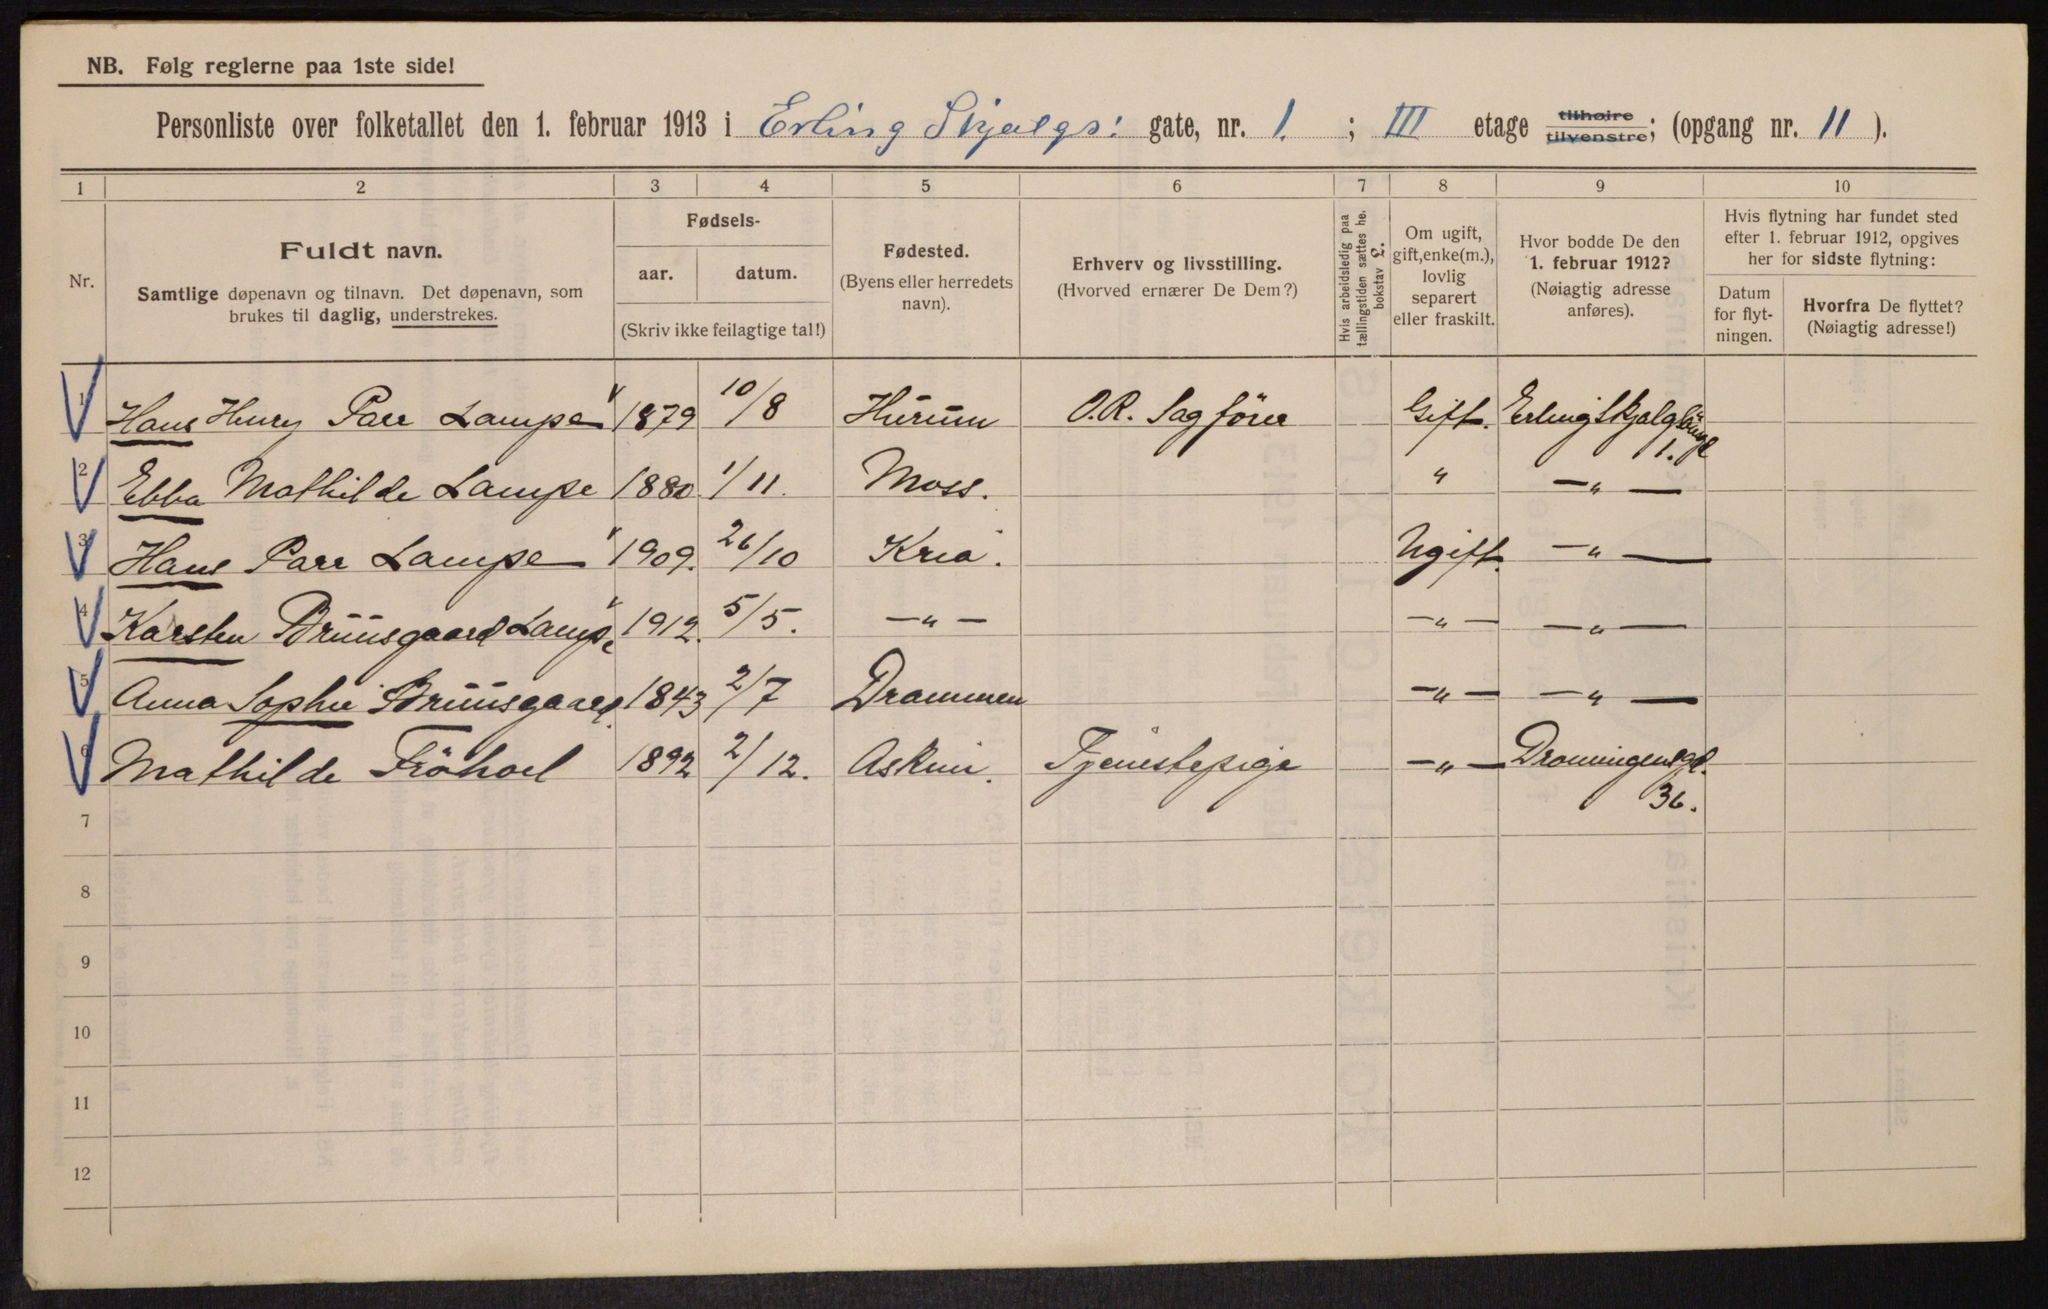 NB. Følg reglerne paa 1ste side!
Personliste over folketallet den 1. februar 1913 i Erling Skjalgs: gate, nr. 1. ; III etage tilhøire tilvenstre; (opgang nr. 11 ).
1 2 3 4 5 6 7 8 9 10
Nr.
Fuldt navn.
Samtlige døpenavn og tilnavn. Det døpenavn, som
brukes til daglig, understrekes.
Fødsels-
aar. datum.
(Skriv ikke feilagtige tal!)
Fødested.
(Byens eller herredets
navn).
Erhverv og livsstilling.
(Hvorved ernærer De Dem?)
Hvis arbeidsledig paa
tællingstiden sættes he.
bokstav L.
Om ugift,
gift, enke(m.),
lovlig
separert
eller fraskilt.
Hvor bodde De den
1. februar 1912?
(Nøiagtig adresse
anføres).
Hvis flytning har fundet sted
efter 1. februar 1912, opgives
her for sidste flytning:
Datum
for flyt-
ningen.
Hvorfra De flyttet?
(Nøiagtig adresse!)
1 Hans Henry Parr Lampe 1879 10/8 Hurum O.R. Sagförer Gift. Erling Skjalgsöns gt 1.
2 Ebba Mathilde Lampe 1880 1/11. Moss. " —"—
3 Hans Parr Lampe 1909. 26/10 Kria. Ugift. —"—
4 Karsten Bruusgaard Lampe 1912. 5/5. —"— —"— —"—
5 Anna Sophie Bruusgaard 1843 2/7 Drammen —"— —"—
6 Mathilde Fröhoel 1892 2/12. Askim. Tjenestepige —"— Droningensgt.
36.
7
8
9
10
11
12